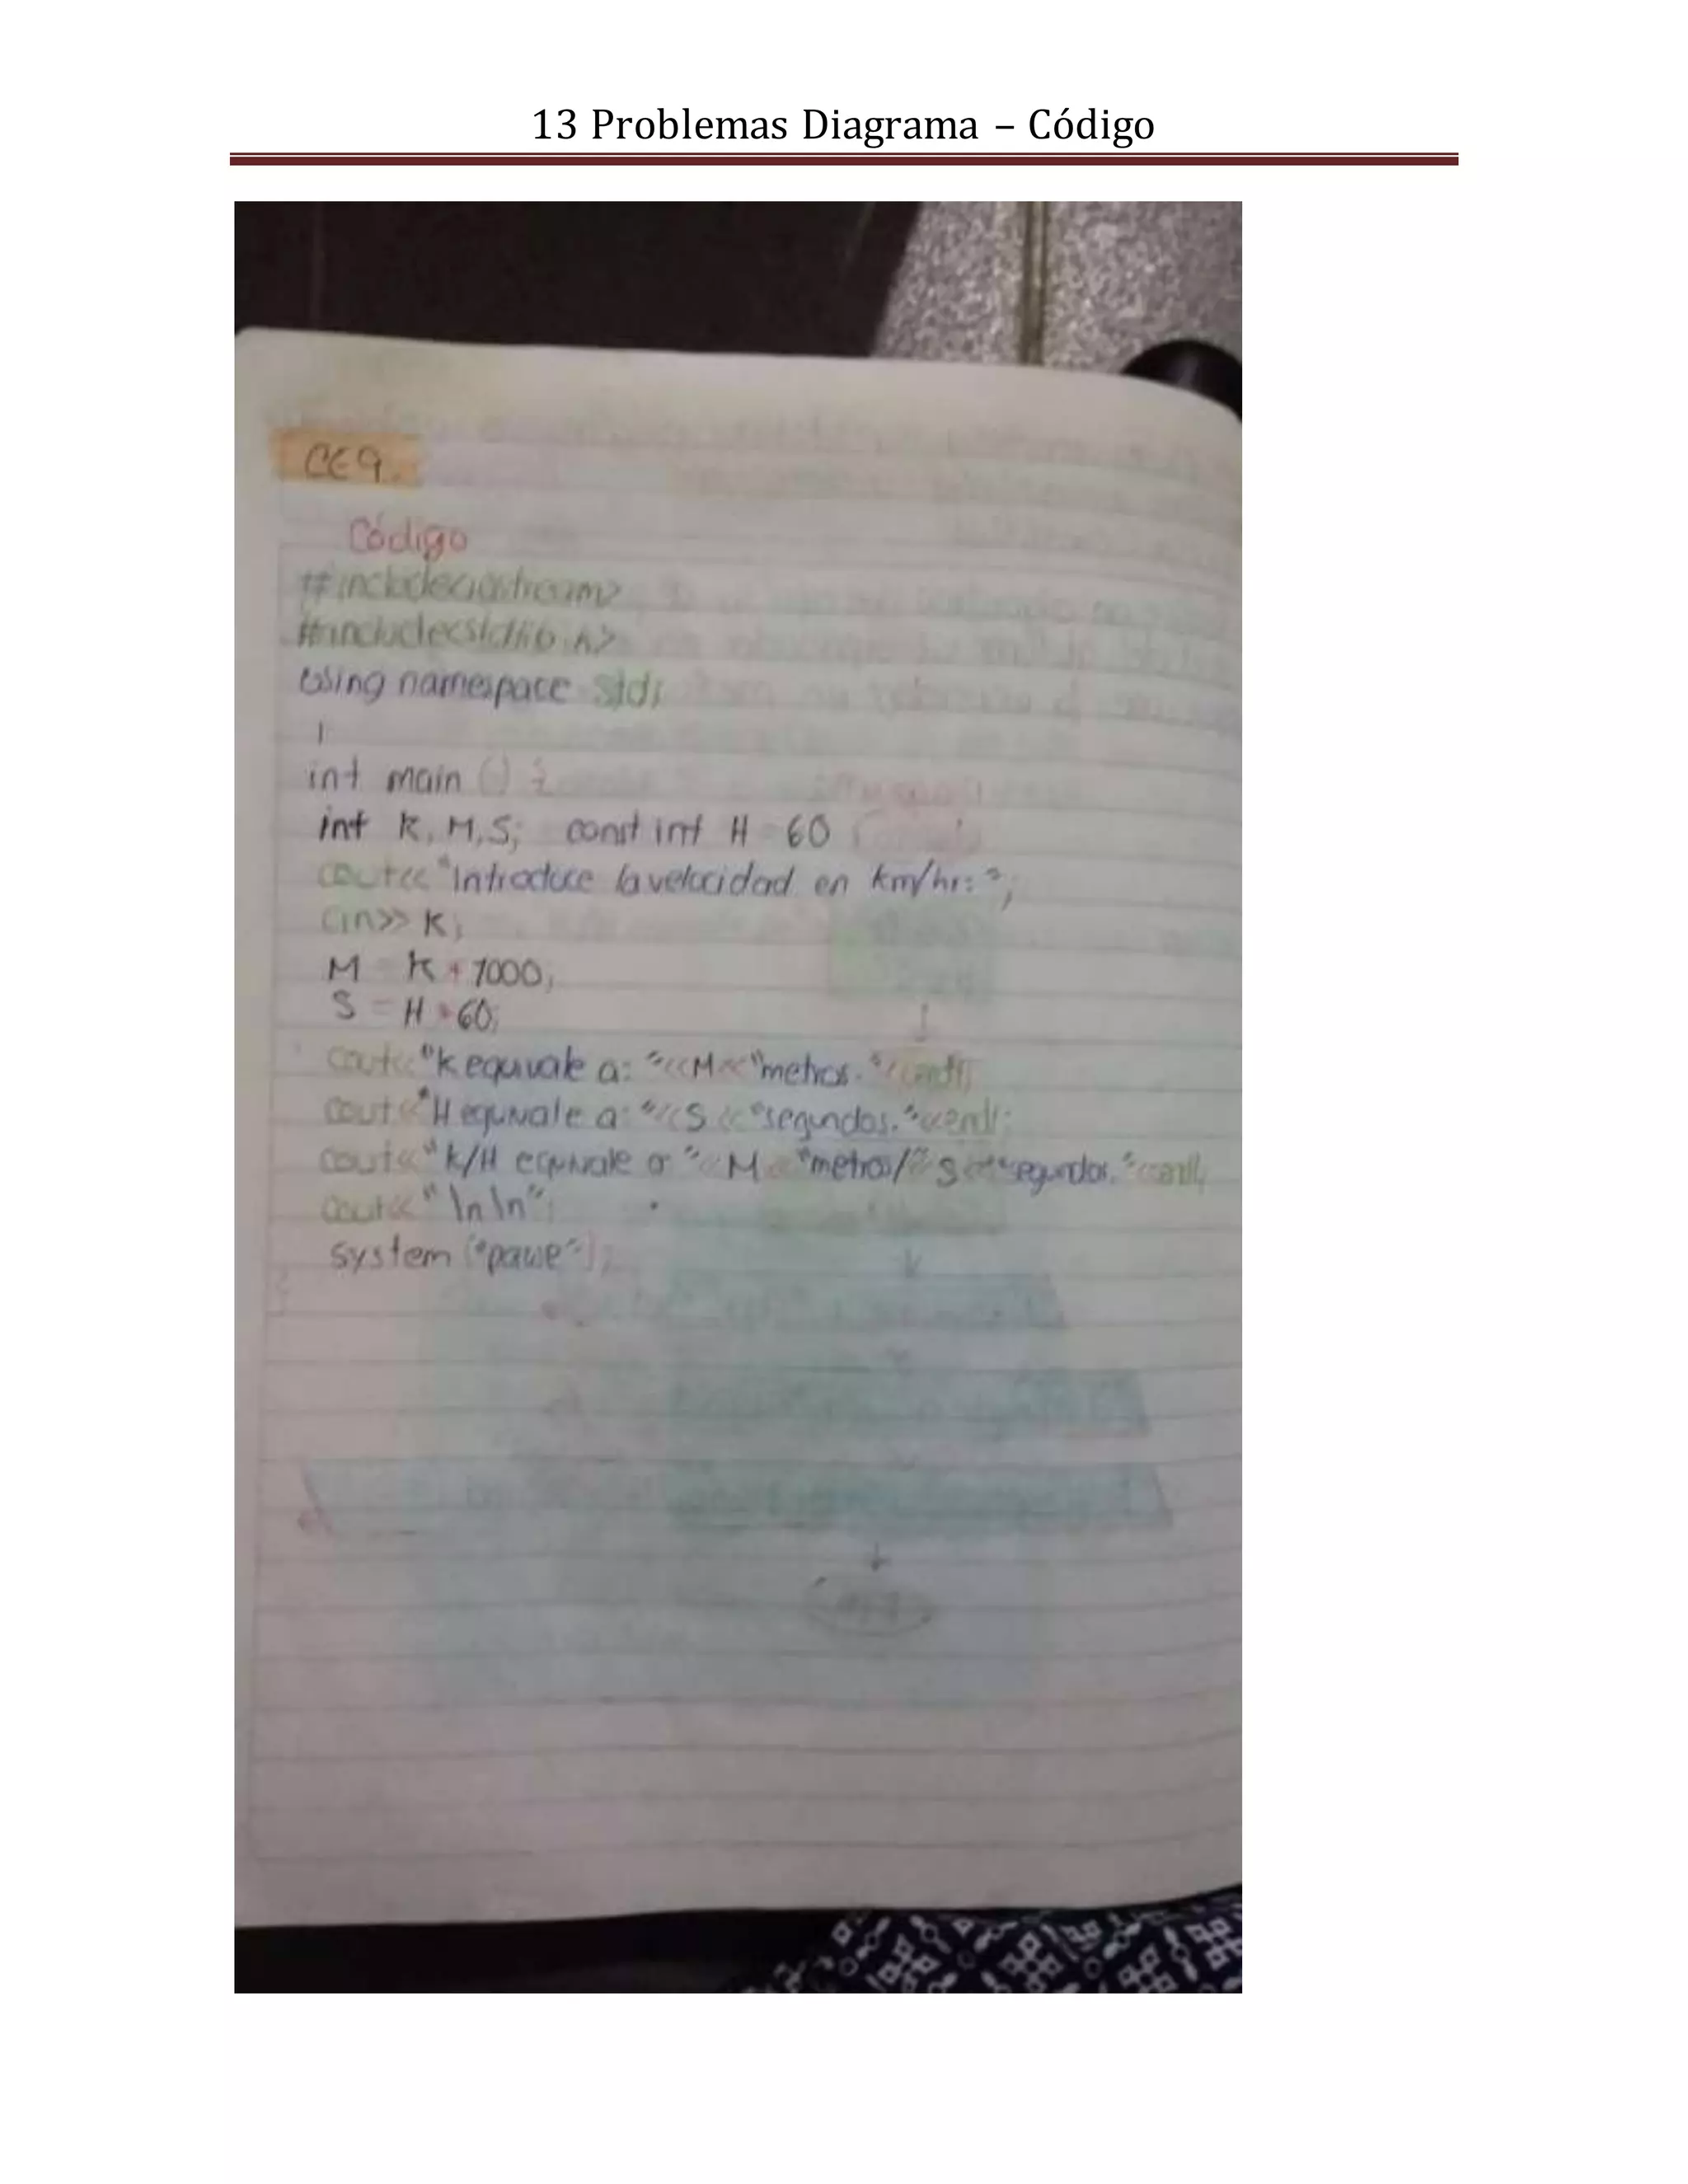 13 Problemas Diagrama – Código
CE9.
Código
#include<iostream>
#include<stdlib.h>
Using namespace std;
int main () {
int K, M, S; const int H = 60
cout<<"Introduce la velocidad en km/hr: ";
cin>> K;
M = K * 1000;
S = H * 60;
cout<<"K equivale a: "<<M<<"metros. "<<endl;
cout<<"H equivale a: "<<S<<"segundos."<<endl;
cout<<"K/H equivale a "<<M<<"metros/"<<S<<"segundos."<<endl;
cout<<"\n\n";
system ("pause");
}